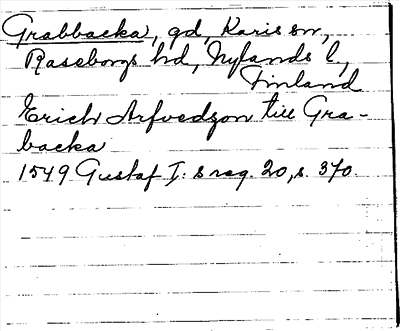 Grabbacka, gd, Karis sn,
Raseborgs hd, Nylands l,
Finland
Erich Arfvedzon till Gra-
backa
1549 Gustaf I:s reg. 20, s. 370.